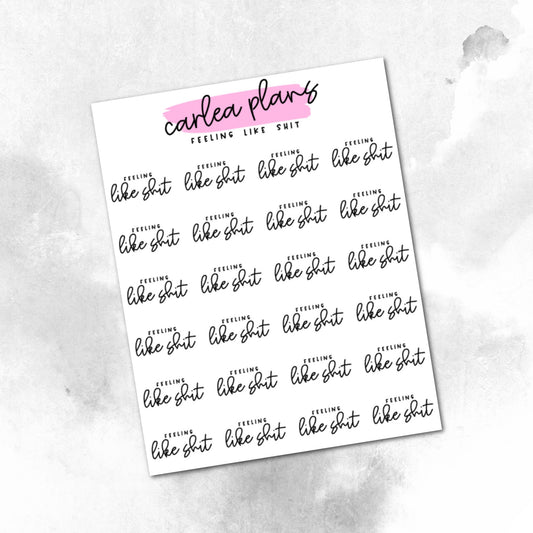 carlea plans
FEELING LIKE SHIT
FEELING
like shit
FEELING
like shit
FEELING
like shit
FEELING
like shit
FEELING
like shit
FEELING
like shit
FEELING
like shit
FEELING
like shit
FEELING
like shit
FEELING
like shit
FEELING
like shit
FEELING
like shit
FEELING
like shit
FEELING
like shit
FEELING
like shit
FEELING
like shit
FEELING
like shit
FEELING
like shit
FEELING
like shit
FEELING
like shit
FEELING
like shit
FEELING
like shit
FEELING
like shit
FEELING
like shit